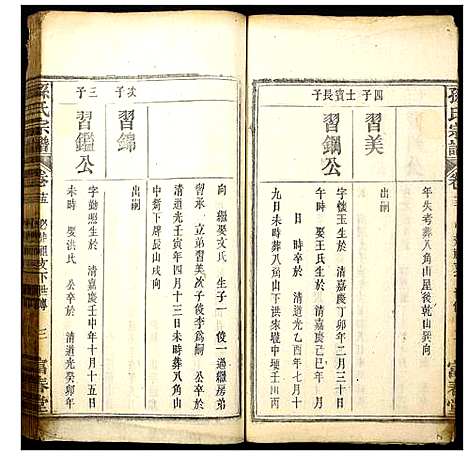 孫氏宗譜
卷
富春堂
年失考葬八角山屋後乾山巽向
四子 士賓長子
習美
習鋼公
出嗣
字懷玉生於 清嘉慶丁卯年二月三十日
時 娶王氏生於 清嘉慶己巳年 月
日 時 公卒於 清道光乙酉年七月十
九日未時葬八角山下洪家壠中埂壬山丙
向 繼娶文氏 生子一 俊一過繼房弟
習承 立弟習美次子後李爲嗣 公卒於
清道光壬寅年四月十三日未時葬八角山
中衖下辰長山戌向
次子 三子
習錦
習鑑公
出嗣
字勤照生於 清嘉慶壬申年十月十五日
未時 娶洪氏 公卒於 清道光癸卯年
孫氏宗譜
卷
下世傳
三
富春堂